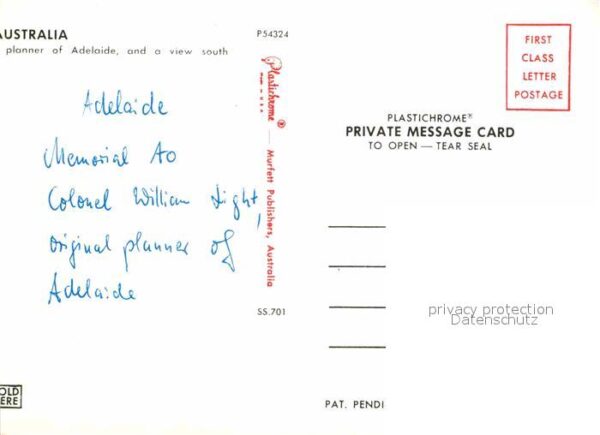 AUSTRALIA
planner of Adelaide, and a view south
P54324
Adelaide
Memorial to
Colonel William Light,
original planner of
Adelaide
Plastichrome®
MADE IN U.S.A.
Murfett Publishers, Australia
SS.701
OLD
ERE
FIRST
CLASS
LETTER
POSTAGE
PLASTICHROME®
PRIVATE MESSAGE CARD
TO OPEN — TEAR SEAL
privacy protection
Datenschutz
PAT. PENDI